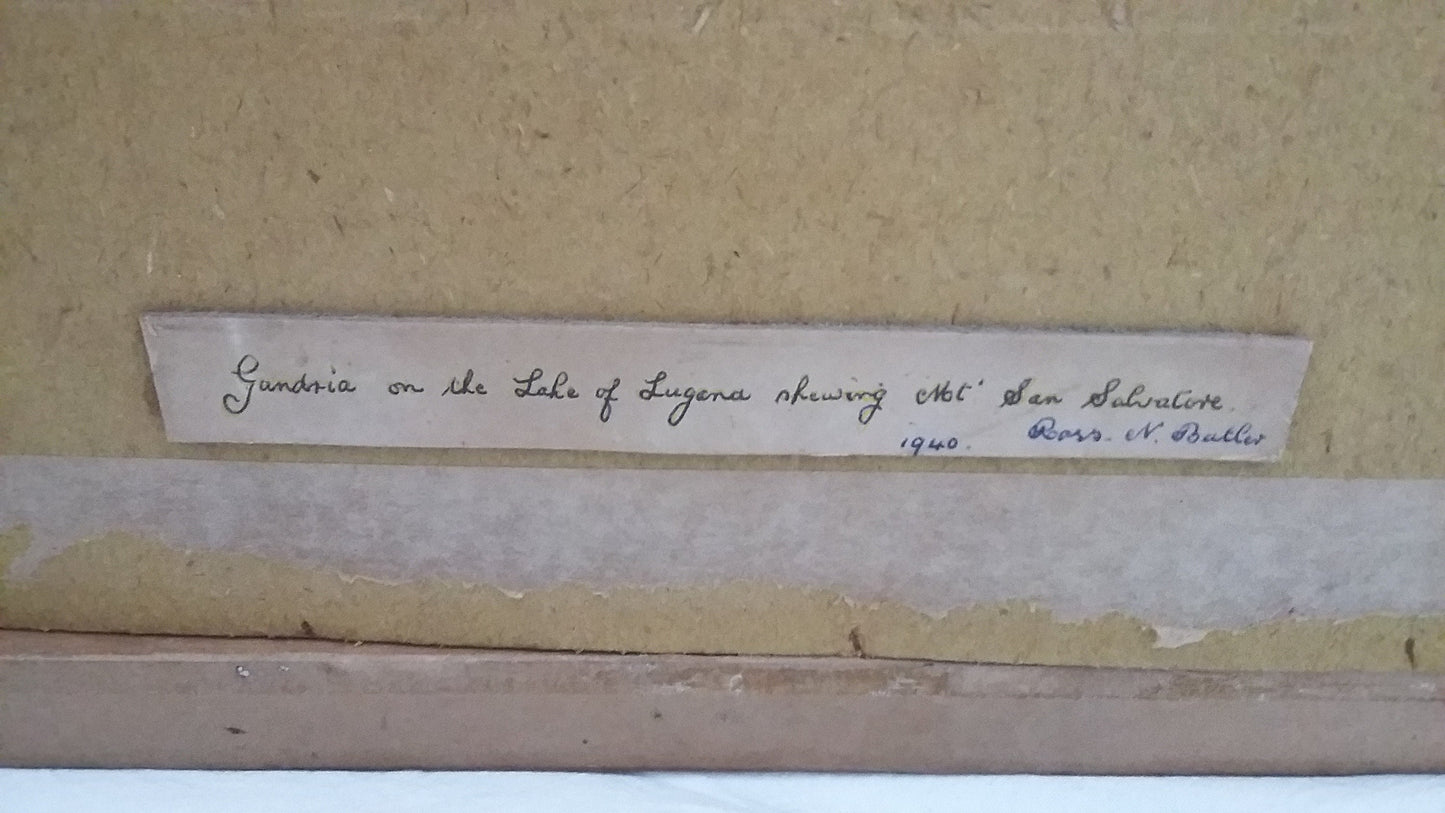 Gandria on the Lake of Lugano shewing Mt' San Salvatore.
1940. Ross. N. Butler